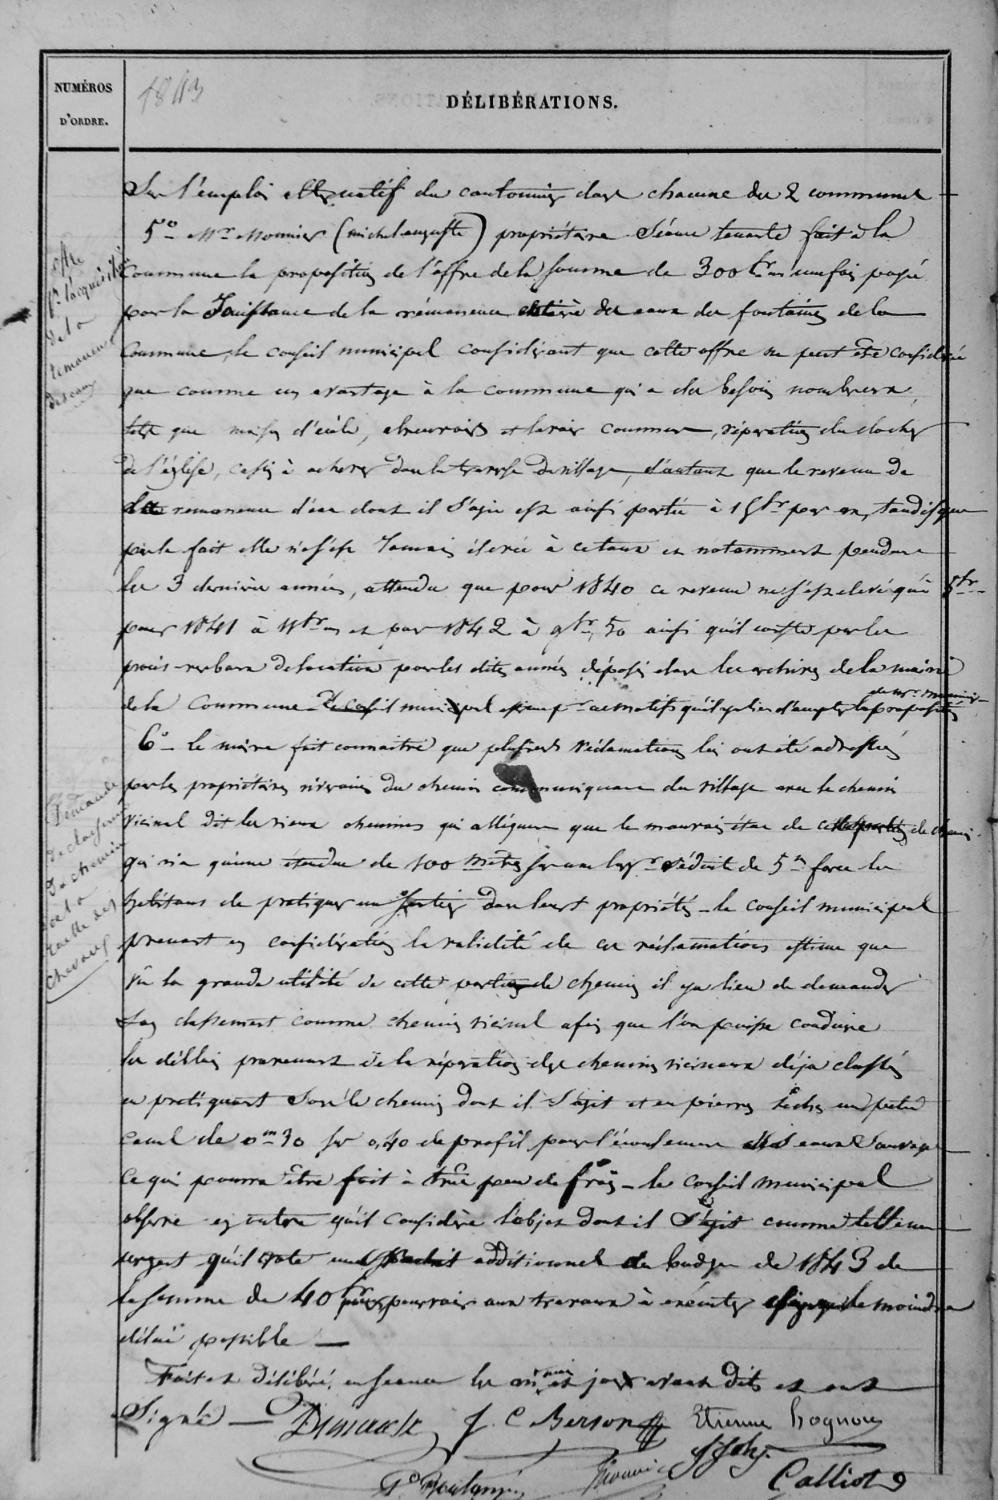 NUMÉROS
D'ORDRE.
1843
DÉLIBÉRATIONS.
Sur l'emploi alternatif du cantonnier dans chacune des 2 communes
5° Mr Monnier (michel auguste) propriétaire Séance tenante fait à la
Commune la proposition de l'offre de la somme de 300 frs une fois payé
pour la Jouissance de la rémanence entière des eaux des fontaines de la
Commune, le conseil municipal considérant que cette offre ne peut être considérée
que comme un avantage à la commune qui a des besoins nombreux,
tels que maison d'école, abreuvoirs et lavoir commun, réparation du clocher
de l'église, cassis à achever dans la traverse du village, d'autant que le revenu de
la remanence d'eau dont il s'agit est ainsi portée à 15 fr par an, tandis que
par le fait elle ne s'est Jamais élevée à ce taux et notamment pendant
les 3 dernières années, attendu que pour 1840 ce revenu ne s'est élevé qu'à 5 fr
pour 1841 à 11 frs et par 1842 à 9 fr, 50 ainsi qu'il conste par les
procès-verbaux de location pour les dites années déposés dans les archives de la mairie
de la Commune Le Conseil municipal pr ces motifs qu'il y a lieu d'accepter la proposition
de Mr Monnier
6° le maire fait connaitre que plusieurs réclamations lui ont été adressées
par les propriétaires riverains du chemin communiquant du village avec le chemin
vicinal dit les vieux chemins qui allèguent que le mauvais état de cette partie de chemin
qui n'a qu'une étendue de 100 mètres sur une largr réduite de 5m force les
habitans de pratiquer un sentier dans leurs propriétés - le conseil municipal
prenant en considération la validité de ces réclamations estime que
vu la grande utilité de cette partie de chemin il y a lieu de demander
Son classement comme chemin vicinal afin que l'on puisse conduire
les déblais provenant de la réparation des chemins vicinaux déja classés
en pratiquant Sous le chemin dont il s'agit et en pierres sèches un petit
canal de 0m 30 sur 0,40 de profil pour l'écoulement des eaux Sauvages
Ce qui pourra être fait à très peu de frais - le Conseil municipal
observe en outre qu'il considère l'objet dont il s'agit comme tellement
urgent qu'il vote un additionnel au budget de 1843 de
la somme de 40 frs pour pourvoir aux travaux à exécuter dans le moindre
délai possible —
Fait et Délibéré en séance les mois et jour avant dits et ont
Signé — Dimier J. C Berson Etienne Rognon
Monnier
Calliot
offre
pr l'acquisition
de la
remanence
des eaux
Demande
de classement
du chemin
de la
des
Chevaux